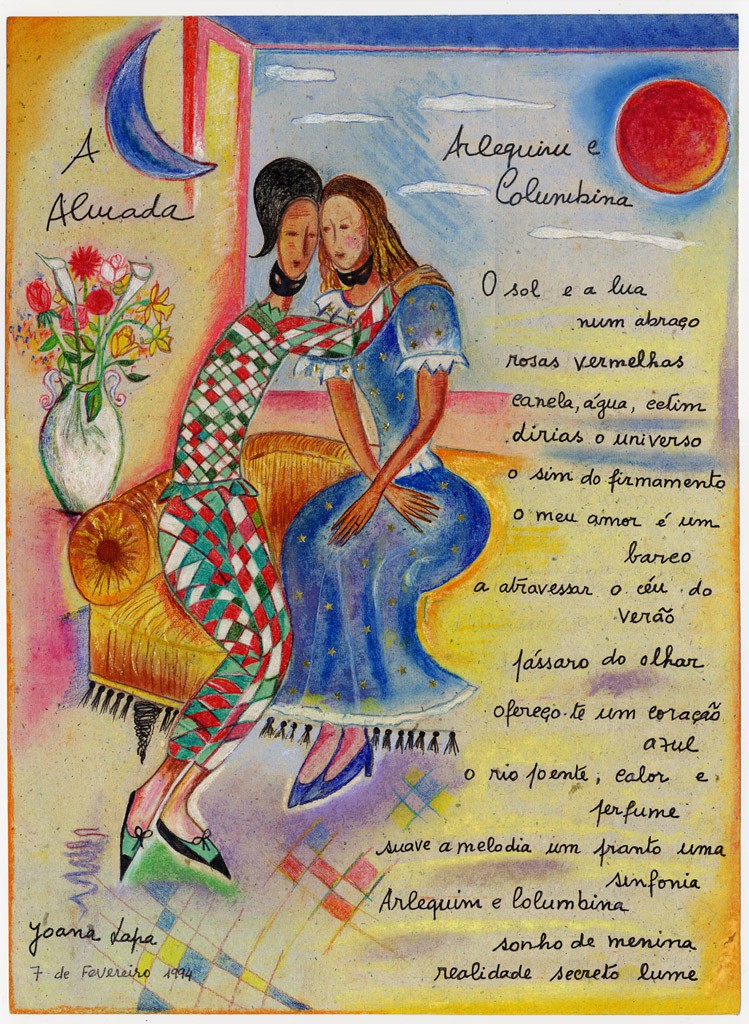 A
Almada
Arlequim e
Columbina
O sol e a lua
num abraço
rosas vermelhas
canela, água, cetim
dirias o universo
o sim do firmamento
o meu amor é um
barco
a atravessar o céu do
verão
pássaro do olhar
ofereço-te um coração
azul
o rio poente, calor e
perfume
suave a melodia um pranto uma
sinfonia
Arlequim e Columbina
sonho de menina
realidade secreto lume
Joana Lapa
7 de Fevereiro 1994